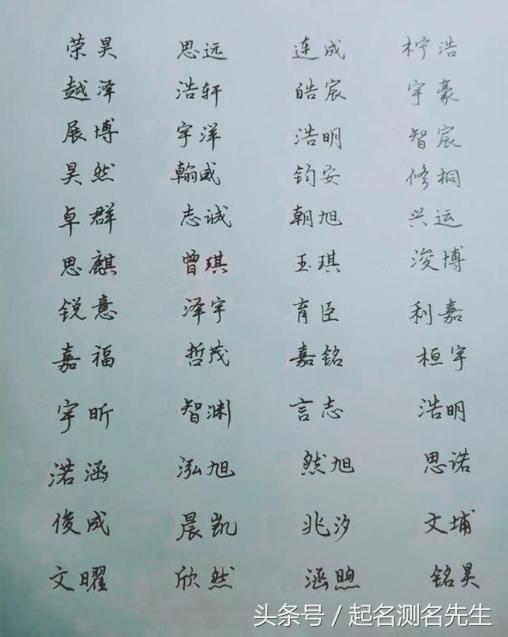 荣昊 思远 连成 柠浩
越泽 浩轩 皓宸 宇豪
展博 宇洋 浩明 智宸
昊然 翰威 钧安 修桐
卓群 志诚 朝旭 兴运
思麒 曾琪 玉琪 浚博
锐意 泽宇 育臣 利嘉
嘉福 哲茂 嘉铭 桓宇
宇昕 智渊 言志 浩明
涵 泓旭 然旭 思诺
俊成 晨凯 兆汐 文埔
文曜 欣然 涵煦 铭昊
头条号/起名测名先生